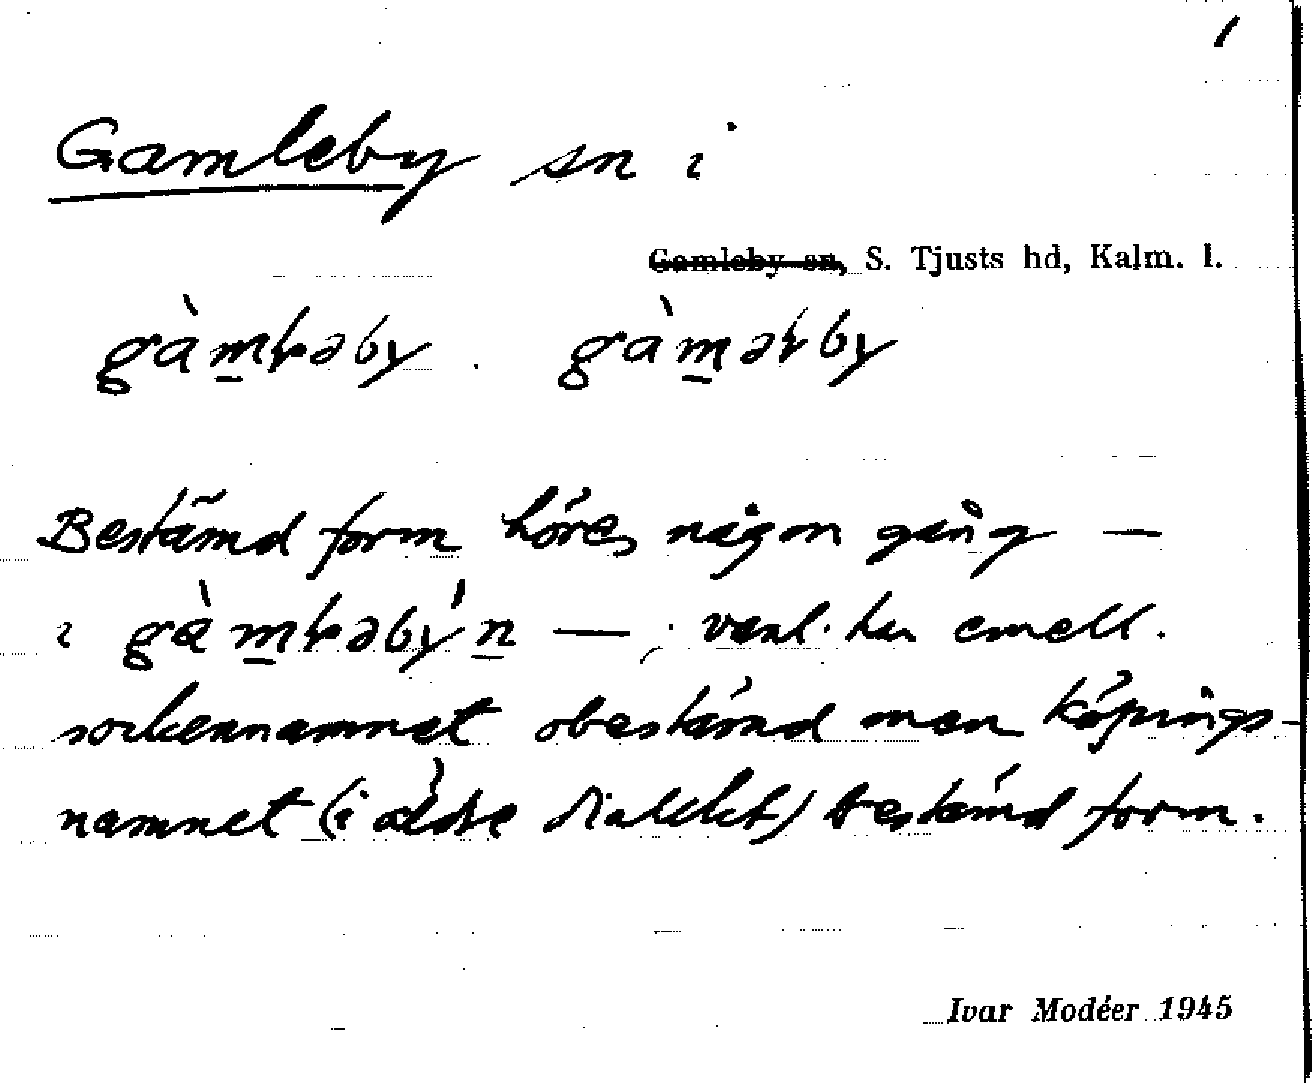 1
Gamleby sn i
Gamleby sn, S. Tjusts hd, Kalm. l.
gàm̲ɫəby. gàm̲əɫby
Bestämd form höres någon gång —
i gàm̲ɫəbýn̲ — ; vanl. har emell.
sockennamnet obestämd men köpings-
namnet (i äldre dialekt) bestämd form.
Ivar Modéer 1945